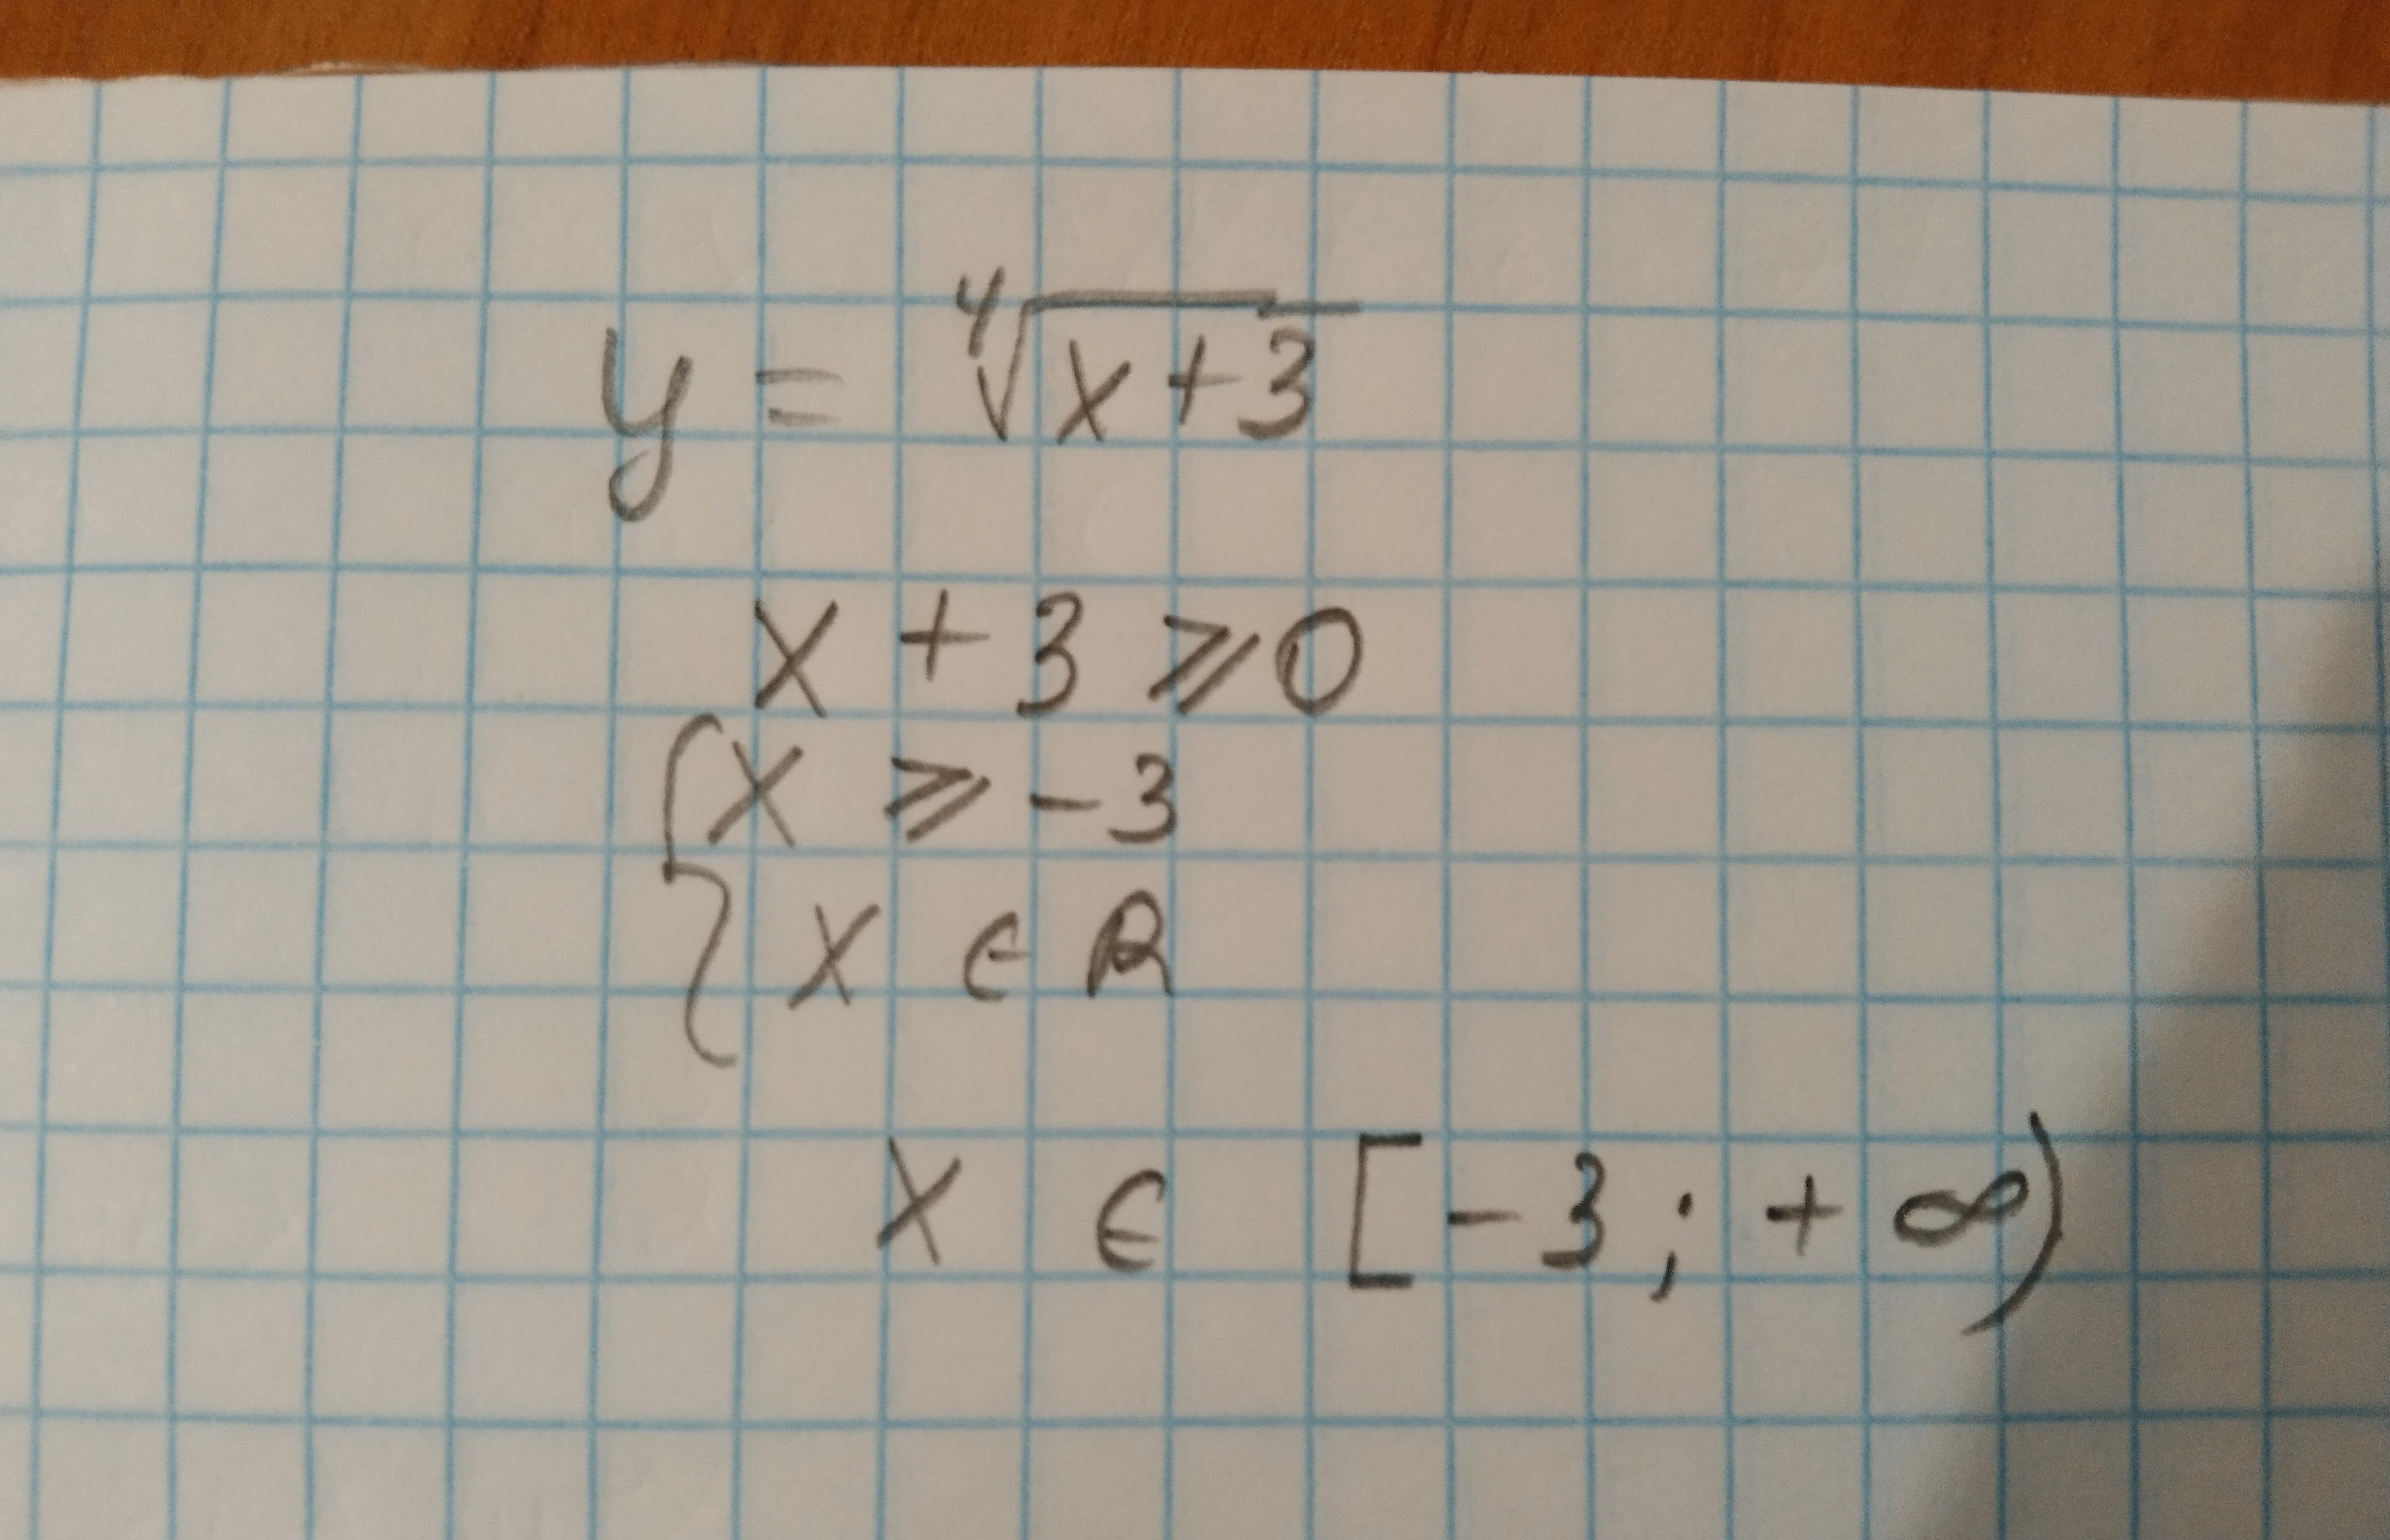 y = ⁴√(x+3)
x + 3 ⩾ 0
{ x ⩾ -3
x ∈ R
x ∈ [-3; +∞)